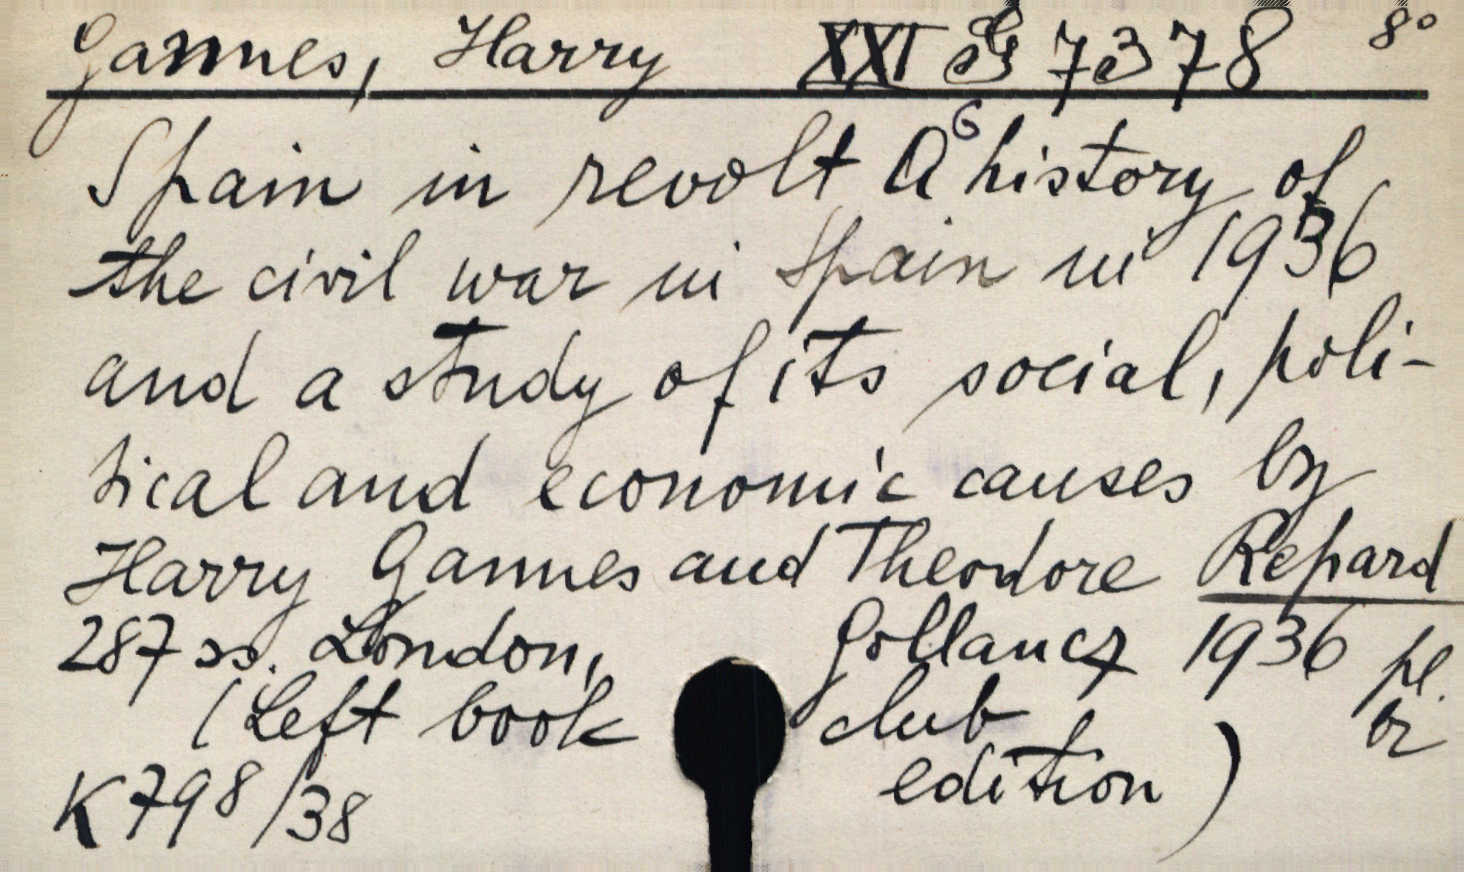 Gannes, Harry XXI G 7378 8°
Spain in revolt A G history of
the civil war in Spain in 1936
and a study of its social, poli-
tical and economic causes by
Harry Gannes and Theodore Repard
287 ss. London, Gollancz 1936 pl.
(Left book club br
edition)
K 798/38